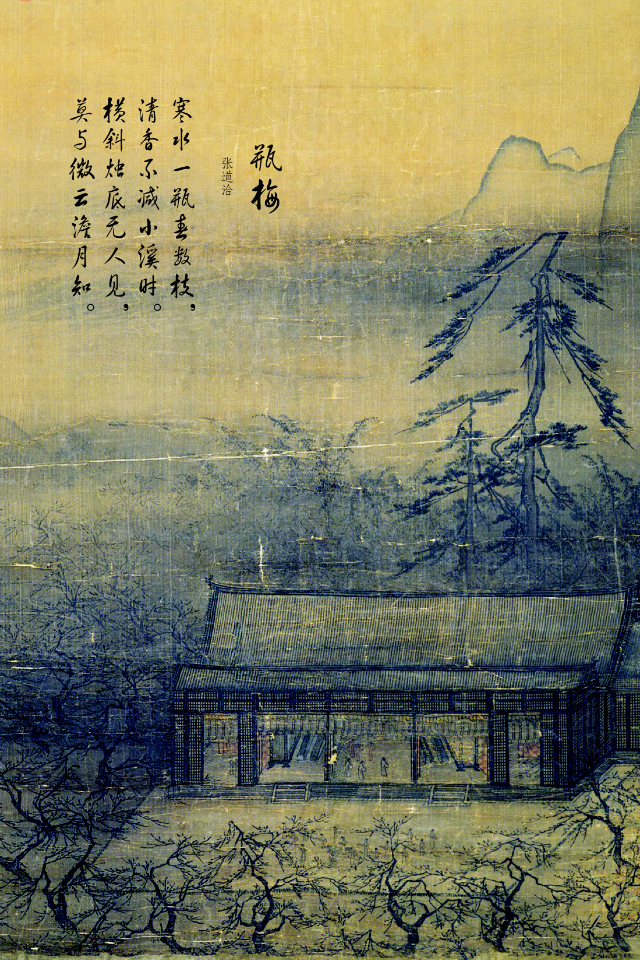 瓶梅
张道洽
寒水一瓶春数枝，
清香不减小溪时。
横斜烛底无人见，
莫与微云澹月知。